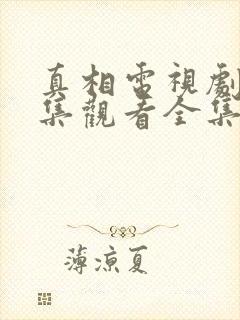 真相電視劇
集觀看全集
薄涼夏